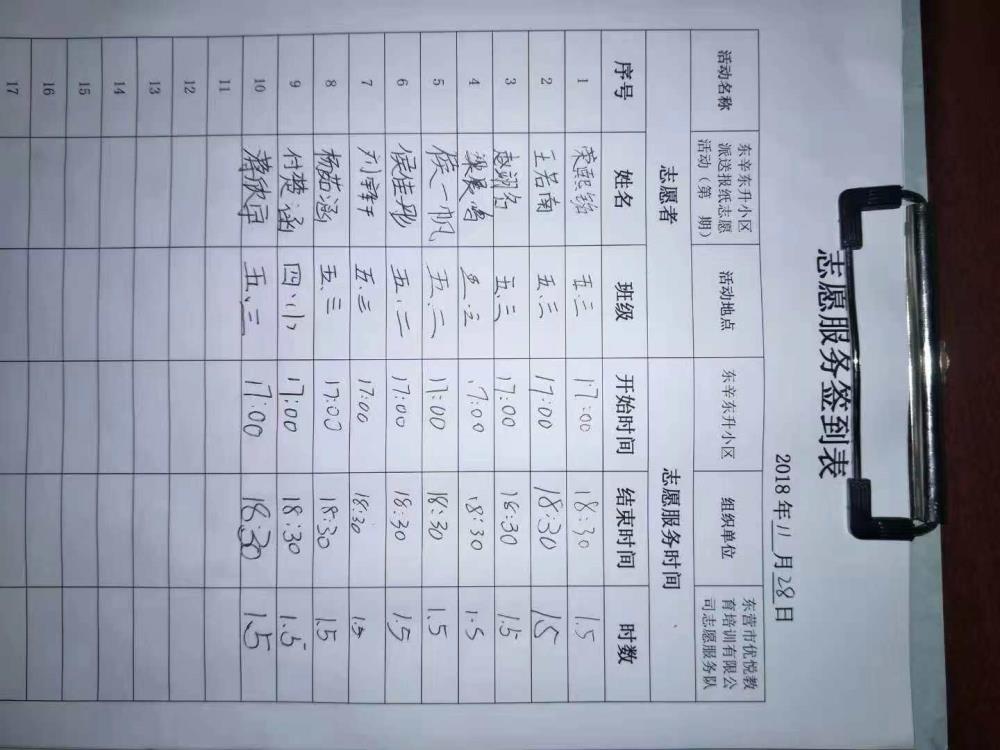 志愿服务签到表
2018年11月28日
活动名称 东辛东升小区派送报纸志愿活动（第 期） 活动地点 东辛东升小区 组织单位 东营市优悦教育培训有限公司志愿服务队
志愿者 志愿服务时间
序号 姓名 班级 开始时间 结束时间 时数
1 荣熙铭 五.三 17:00 18:30 1.5
2 王若南 五.三 17:00 18:30 1.5
3 五.三 17:00 18:30 1.5
4 17:00 18:30 1.5
5 侯一帆 五.二 17:00 18:30 1.5
6 侯佳彤 五.二 17:00 18:30 1.5
7 五.三 17:00 18:30 1.5
8 杨茹涵 五.三 17:00 18:30 1.5
9 付楚涵 四.小 17:00 18:30 1.5
10 蒋欣宇 五.三 17:00 18:30 1.5
11
12
13
14
15
16
17